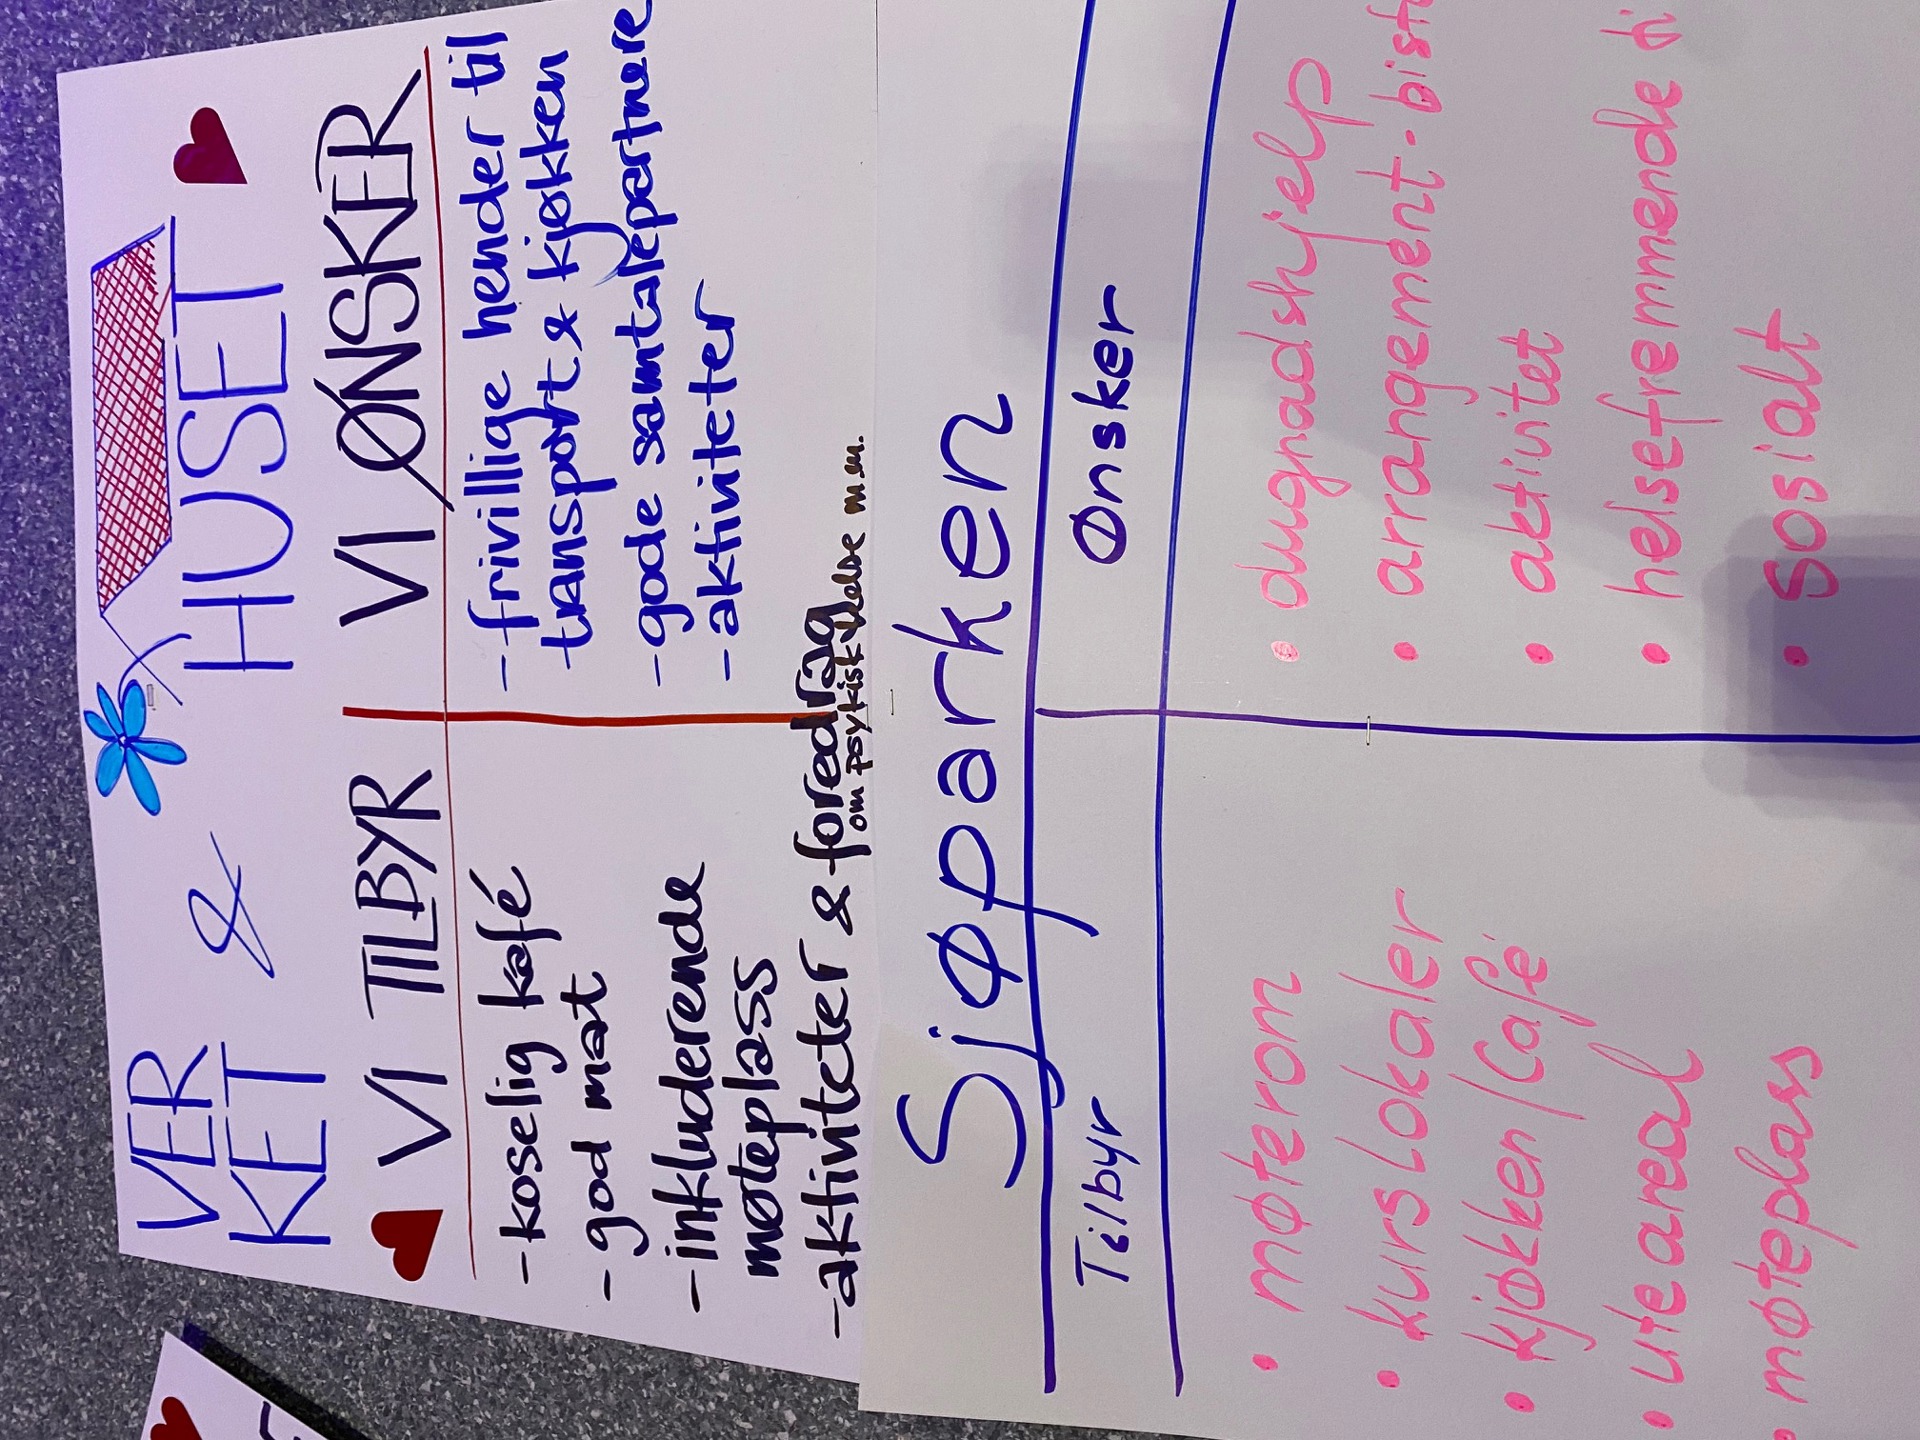 VER
KET & HUSET
VI TILBYR
VI ØNSKER
-koselig kafé
-god mat
-inkluderende
møteplass
-aktiviteter & foredrag
om psykisk helse m.m.
-frivillige hender til
transport & kjøkken
-gode samtalepartnere
-aktiviteter
Sjøparken
Tilbyr
Ønsker
• møterom
• kurslokaler
• kjøkken/Café
• uteareal
• møteplass
• dugnadshjelp
• arrangement-bist
• aktivitet
• helsefremmende ti
• Sosialt